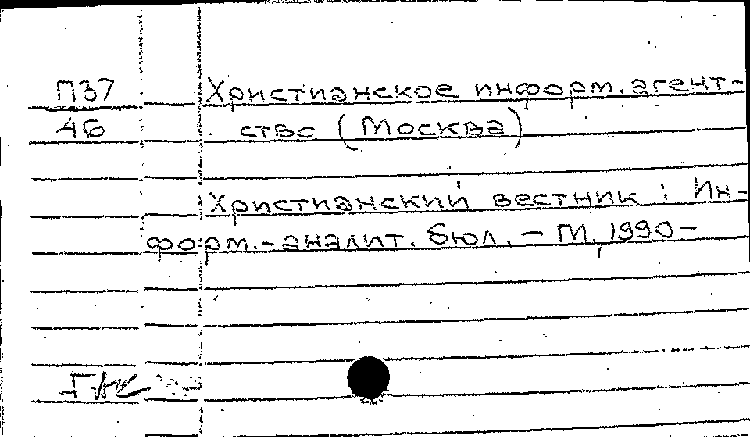 П37 Христианское информ. агент-
46 ство (Москва)
Христианский вестник : Ин-
форм.-аналит. бюл. - М., 1990-